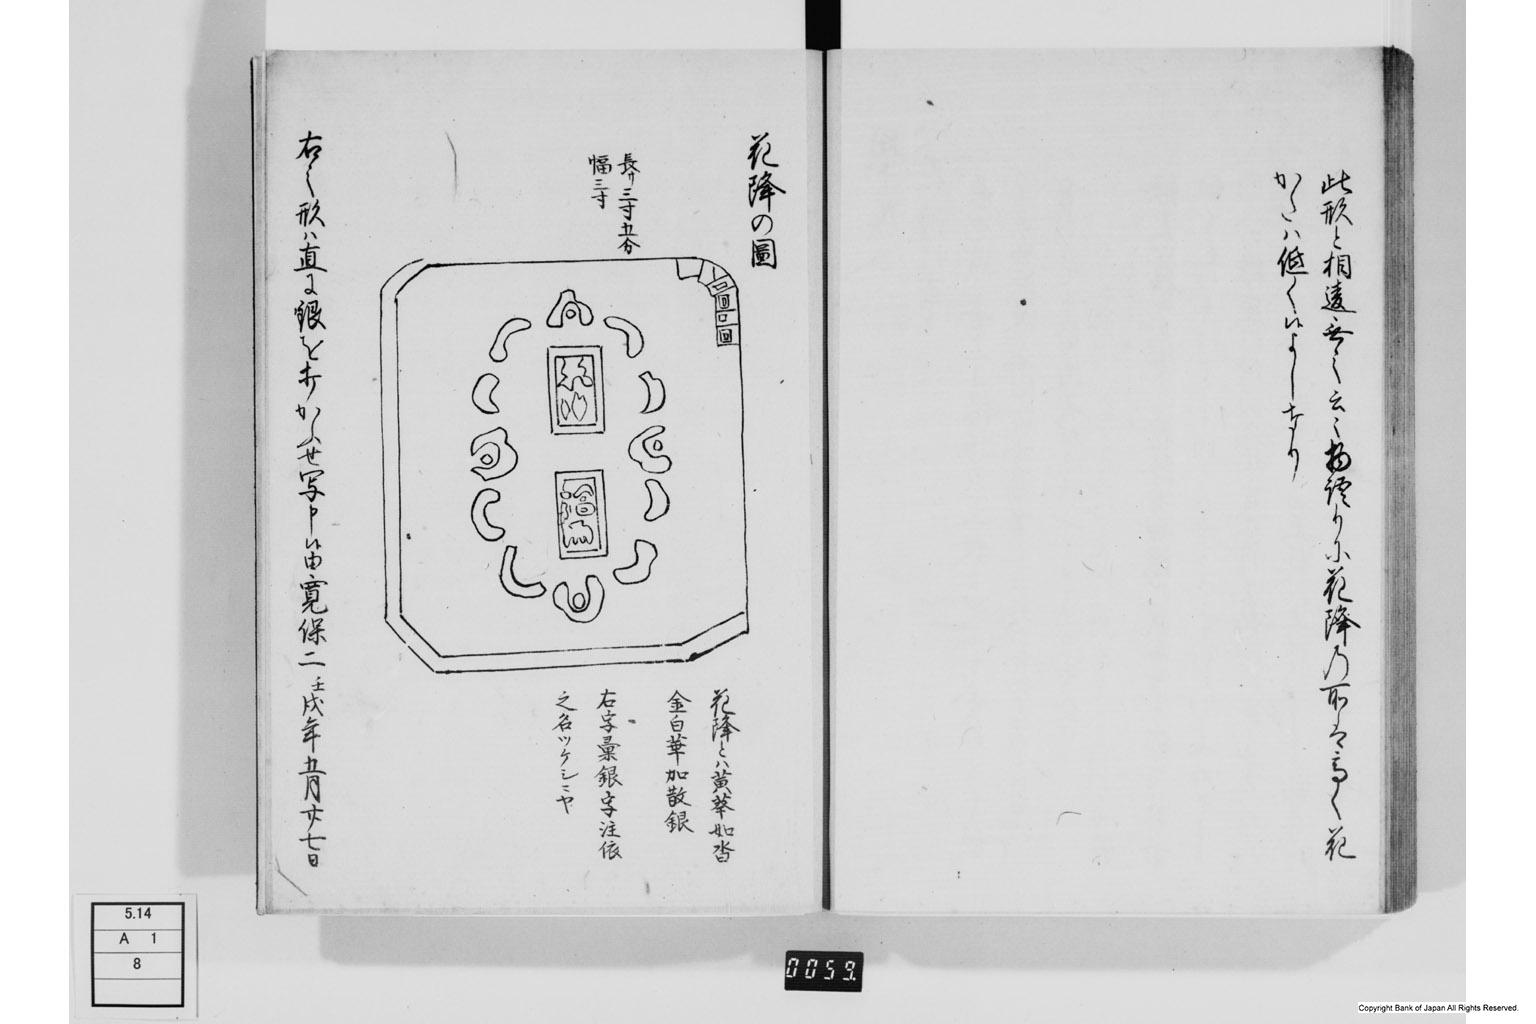 此形と相違無く云々物語りに花降の所は高く花
かたハ低く候よしなり
花降の圖
長サ三寸五分
幅三寸
花降とハ黄華如沓
金白華加散銀
右字彙銀字注依
之名ツケシニヤ
右之形ハ直に銀を打かふせ写申候由寛保二壬戌年五月廿七日
5.14
A 1
8
0059
Copyright Bank of Japan All Rights Reserved.